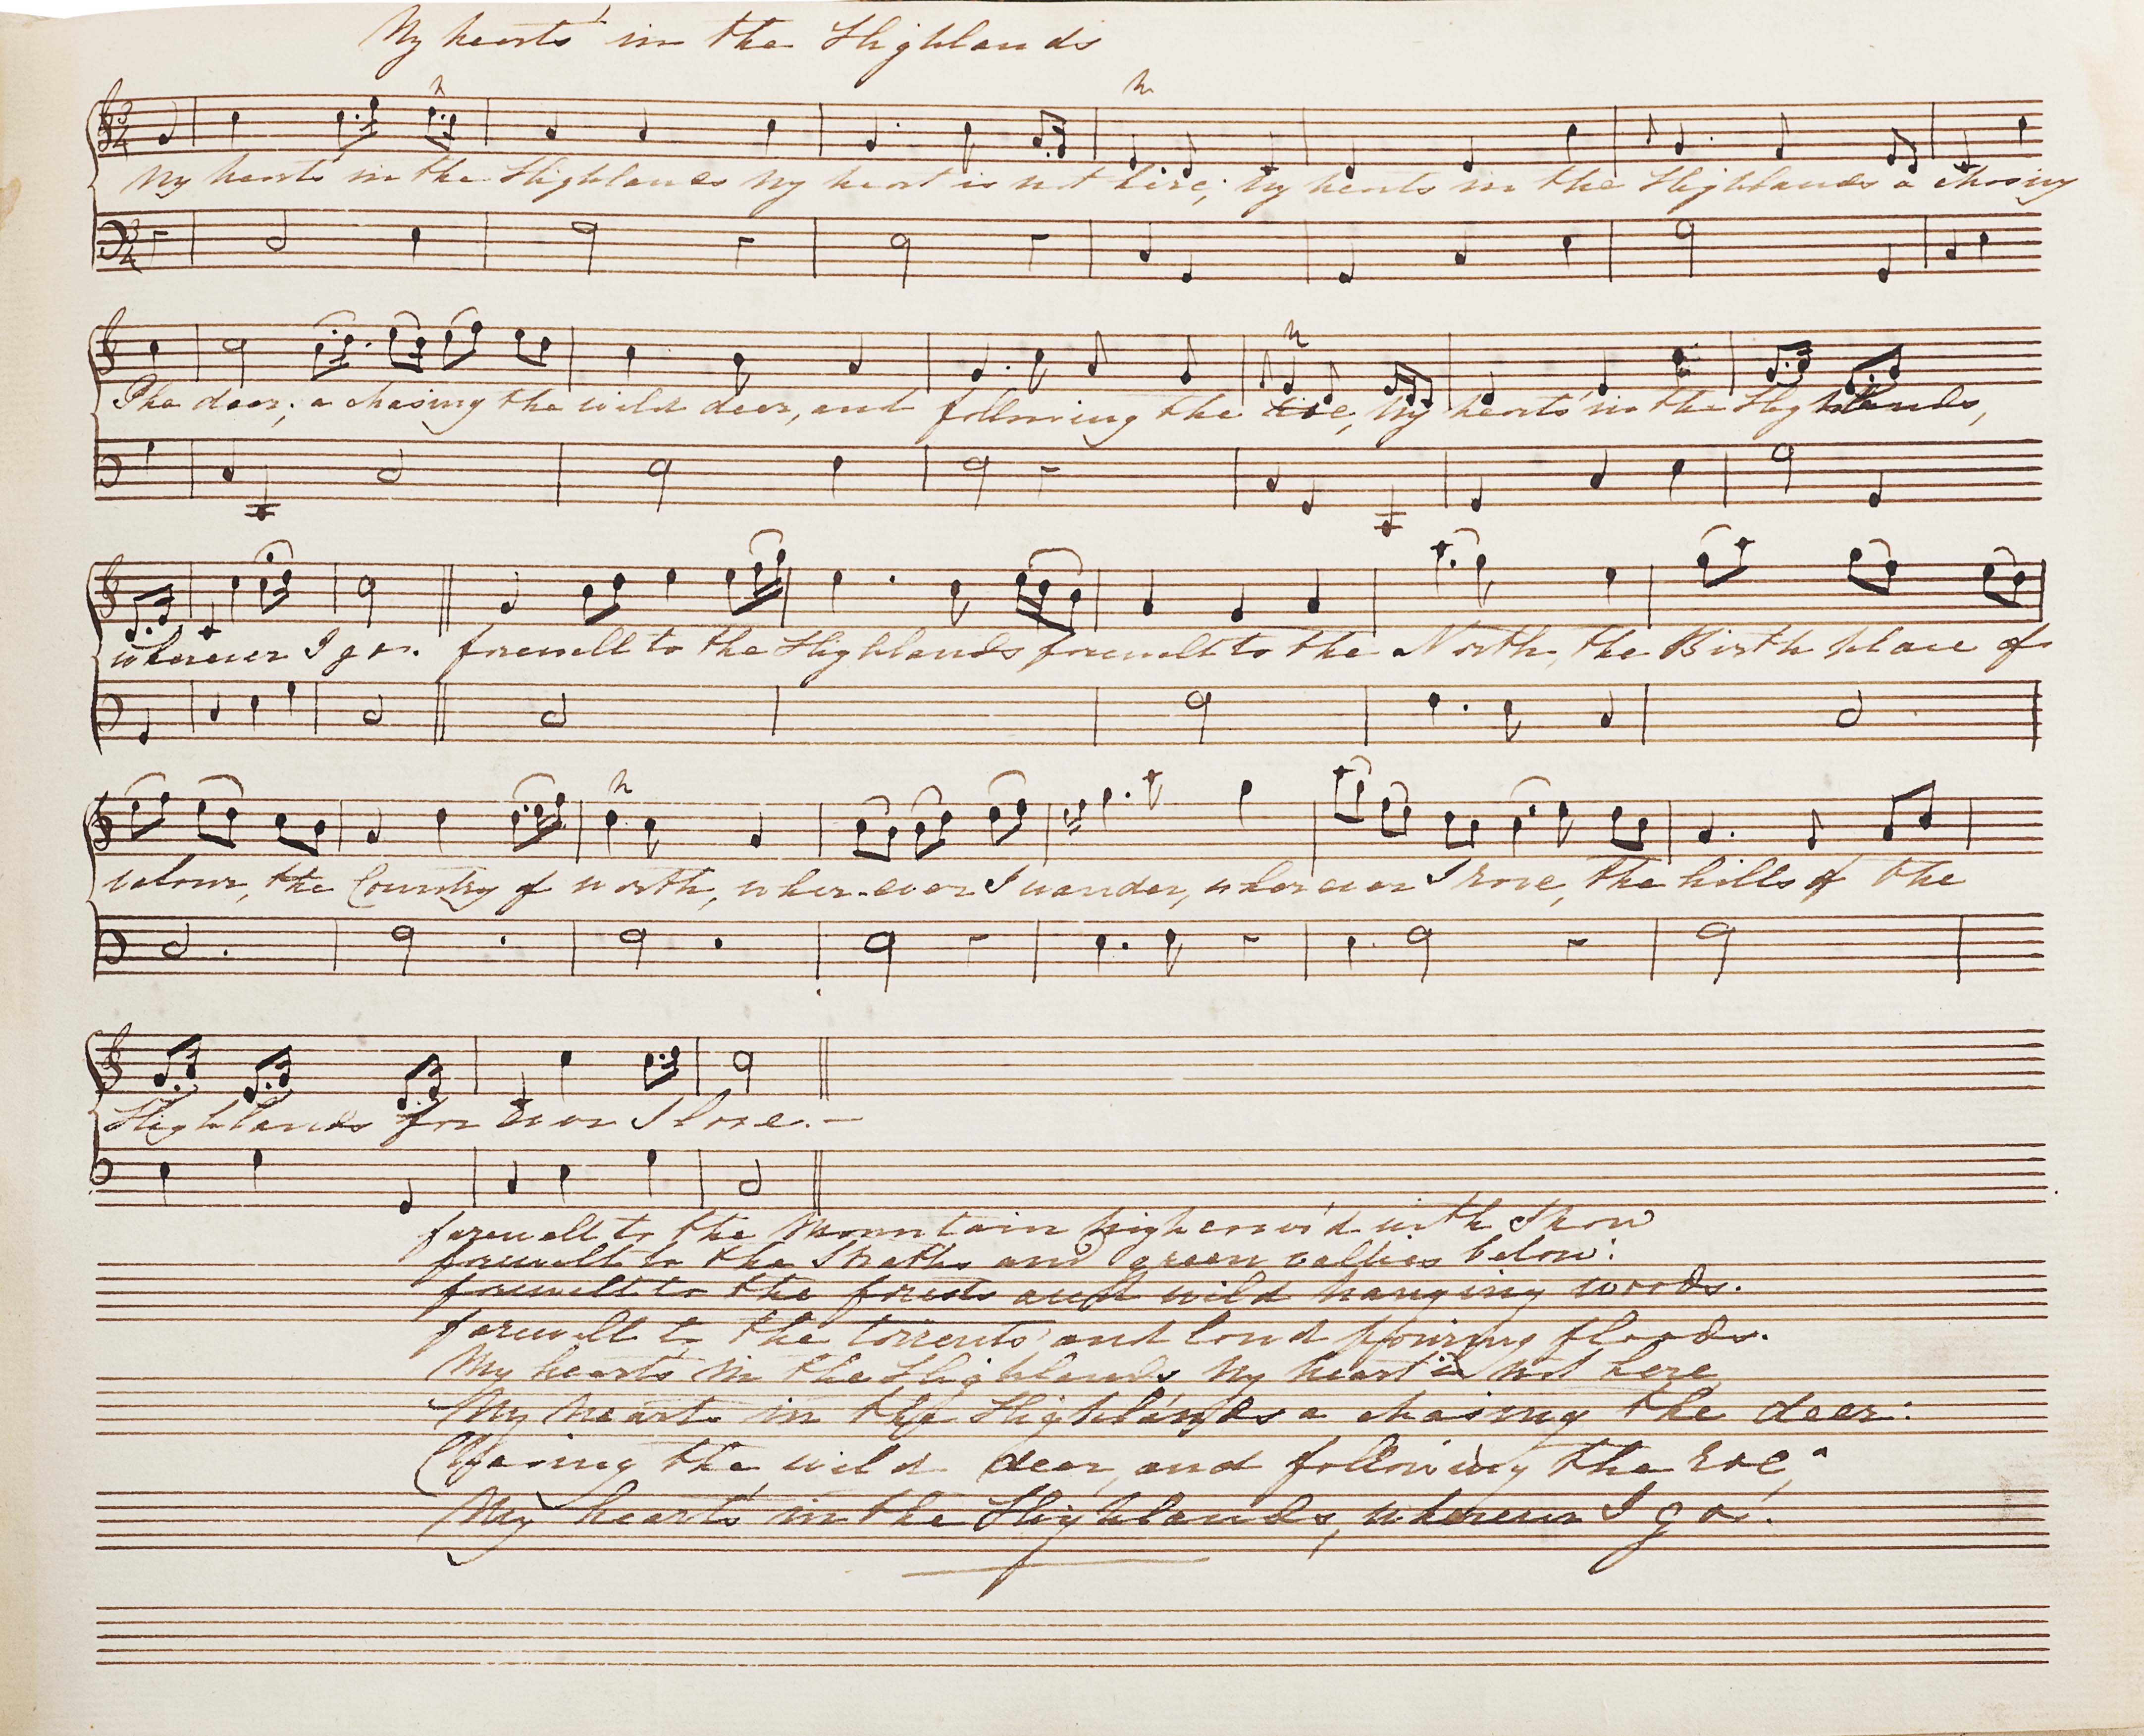 My hearts' in the Highlands
3
4
My hearts in the Highlands My heart is not here; My hearts in the Highlands a chasing
3
4
The deer; a chasing the wild deer, and following the roe, My hearts in the Highlands,
wherever I go. farewell to the Highlands farewell to the North, the Birth place of
valour, the Country of worth, wher-ever I wander, wherever I rove, the hills of the
Highlands for Ever I love. —
farewell to the Mountain high cover'd with Snow
farewell to the Straths and green vallies below:
farewell to the forests and wild hanging woods.
farewell to the torrents and loud pouring floods.
My hearts in the Highlands My heart is not here
My hearts in the Highlands a chasing the deer:
Chasing the wild deer, and following the roe,
My heart's in the Highlands, wherever I go.